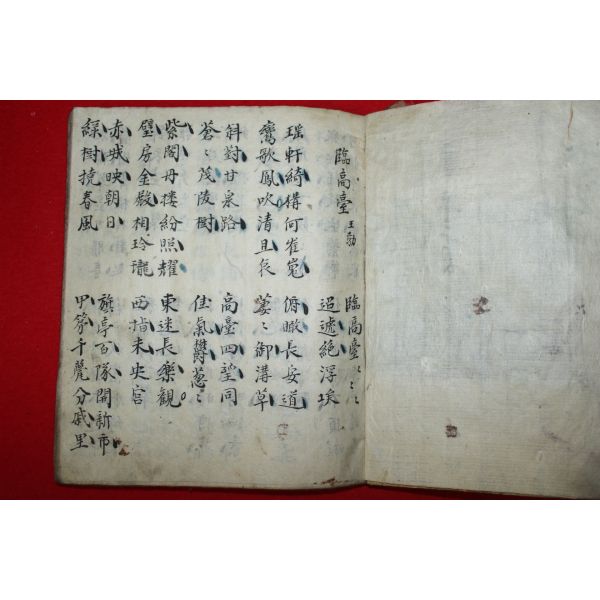 臨高臺 王勃
臨高臺〻〻〻
迢遞絕浮埃
瑶軒綺構何崔嵬
鸞歌鳳吹清且哀
俯瞰長安道
萋〻御溝草
斜對甘泉路
蒼〻茂陵樹
高臺四望同
佳氣欝葱〻
紫閣丹樓紛照耀
璧房金殿相玲瓏
東迷長樂觀
西指未央宮
赤城映朝日
綠樹撓春風
旗亭百隊開新市
甲第千甍分戚里